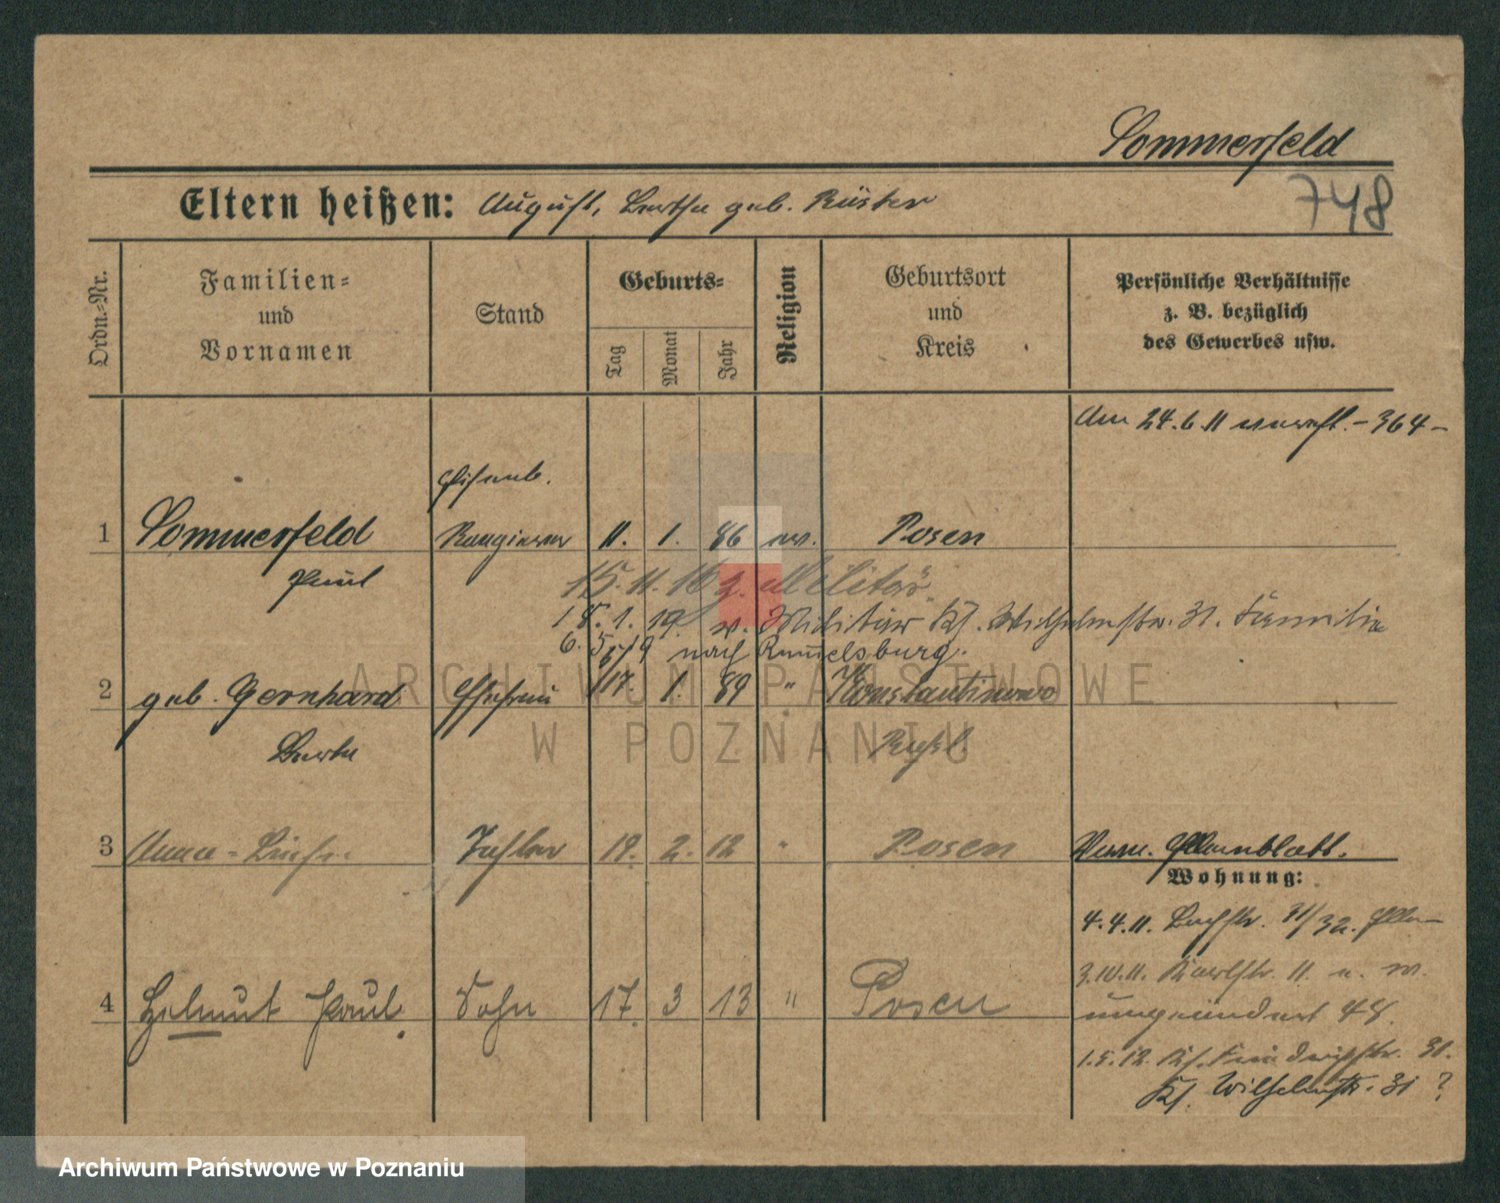 Sommerfeld
748
Eltern heißen: August, Bertha geb. Rüster
Ordn.=Nr.
Familien=
und
Vornamen
Stand
Geburts=
Tag
Monat
Jahr
Religion
Geburtsort
und
Kreis
Persönliche Verhältnisse
z. B. bezüglich
des Gewerbes usw.
Am 24.6.11 -364-
Eisenb.
1 Sommerfeld Rangierer 11. 1. 86 ev. Posen
Paul
15.11.16 z. Militär
18.1.19. v. Militär Kf. Wilhelmstr. 31. Familie
6.5.19 nach Rummelsburg.
2 geb. Gernhard Ehefrau 17. 1. 89 " Konstantinowo
Berta
3 Tochter 19. 2. 12 " Posen
Elternblatt.
Wohnung:
4.4.11. Bachstr. 31/32.
4 Helmut Paul. Sohn 17. 3 13 " Posen
3.10.11. Karlstr. 11 u. w.
umgeändert 48.
1.5.12. Kf. 31.
Kf. Wilhelmstr. 31 ?
ARCHIWUM PAŃSTWOWE
W POZNANIU
Archiwum Państwowe w Poznaniu